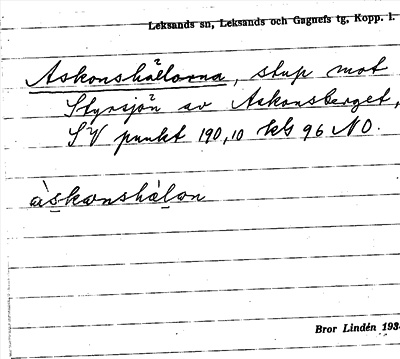 Leksands sn, Leksands och Gagnefs tg, Kopp. l.
Askonshällorna, stup mot
Styrsjön av Askonsberget,
SV punkt 190,10 kbl 96 NO.
àskonshàlan
Bror Lindén 193